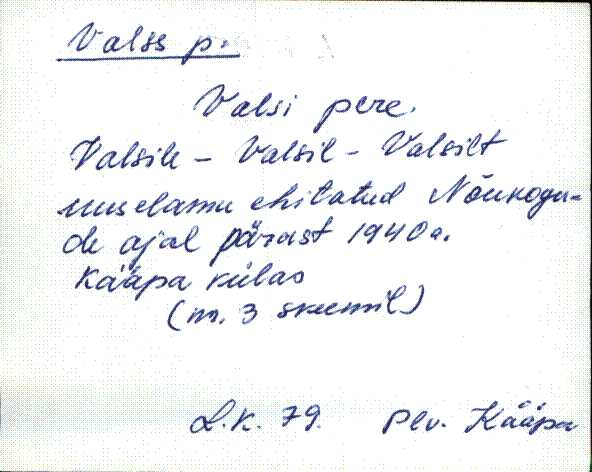 Valss p.
Valsi pere.
Valsile - Valsil - Valsilt
uuselamu ehitatud Nõukogu-
de ajal pärast 1940 a.
Kääpa külas
(nr. 3 skeemil)
L.K. 79. Plv. Kääpa